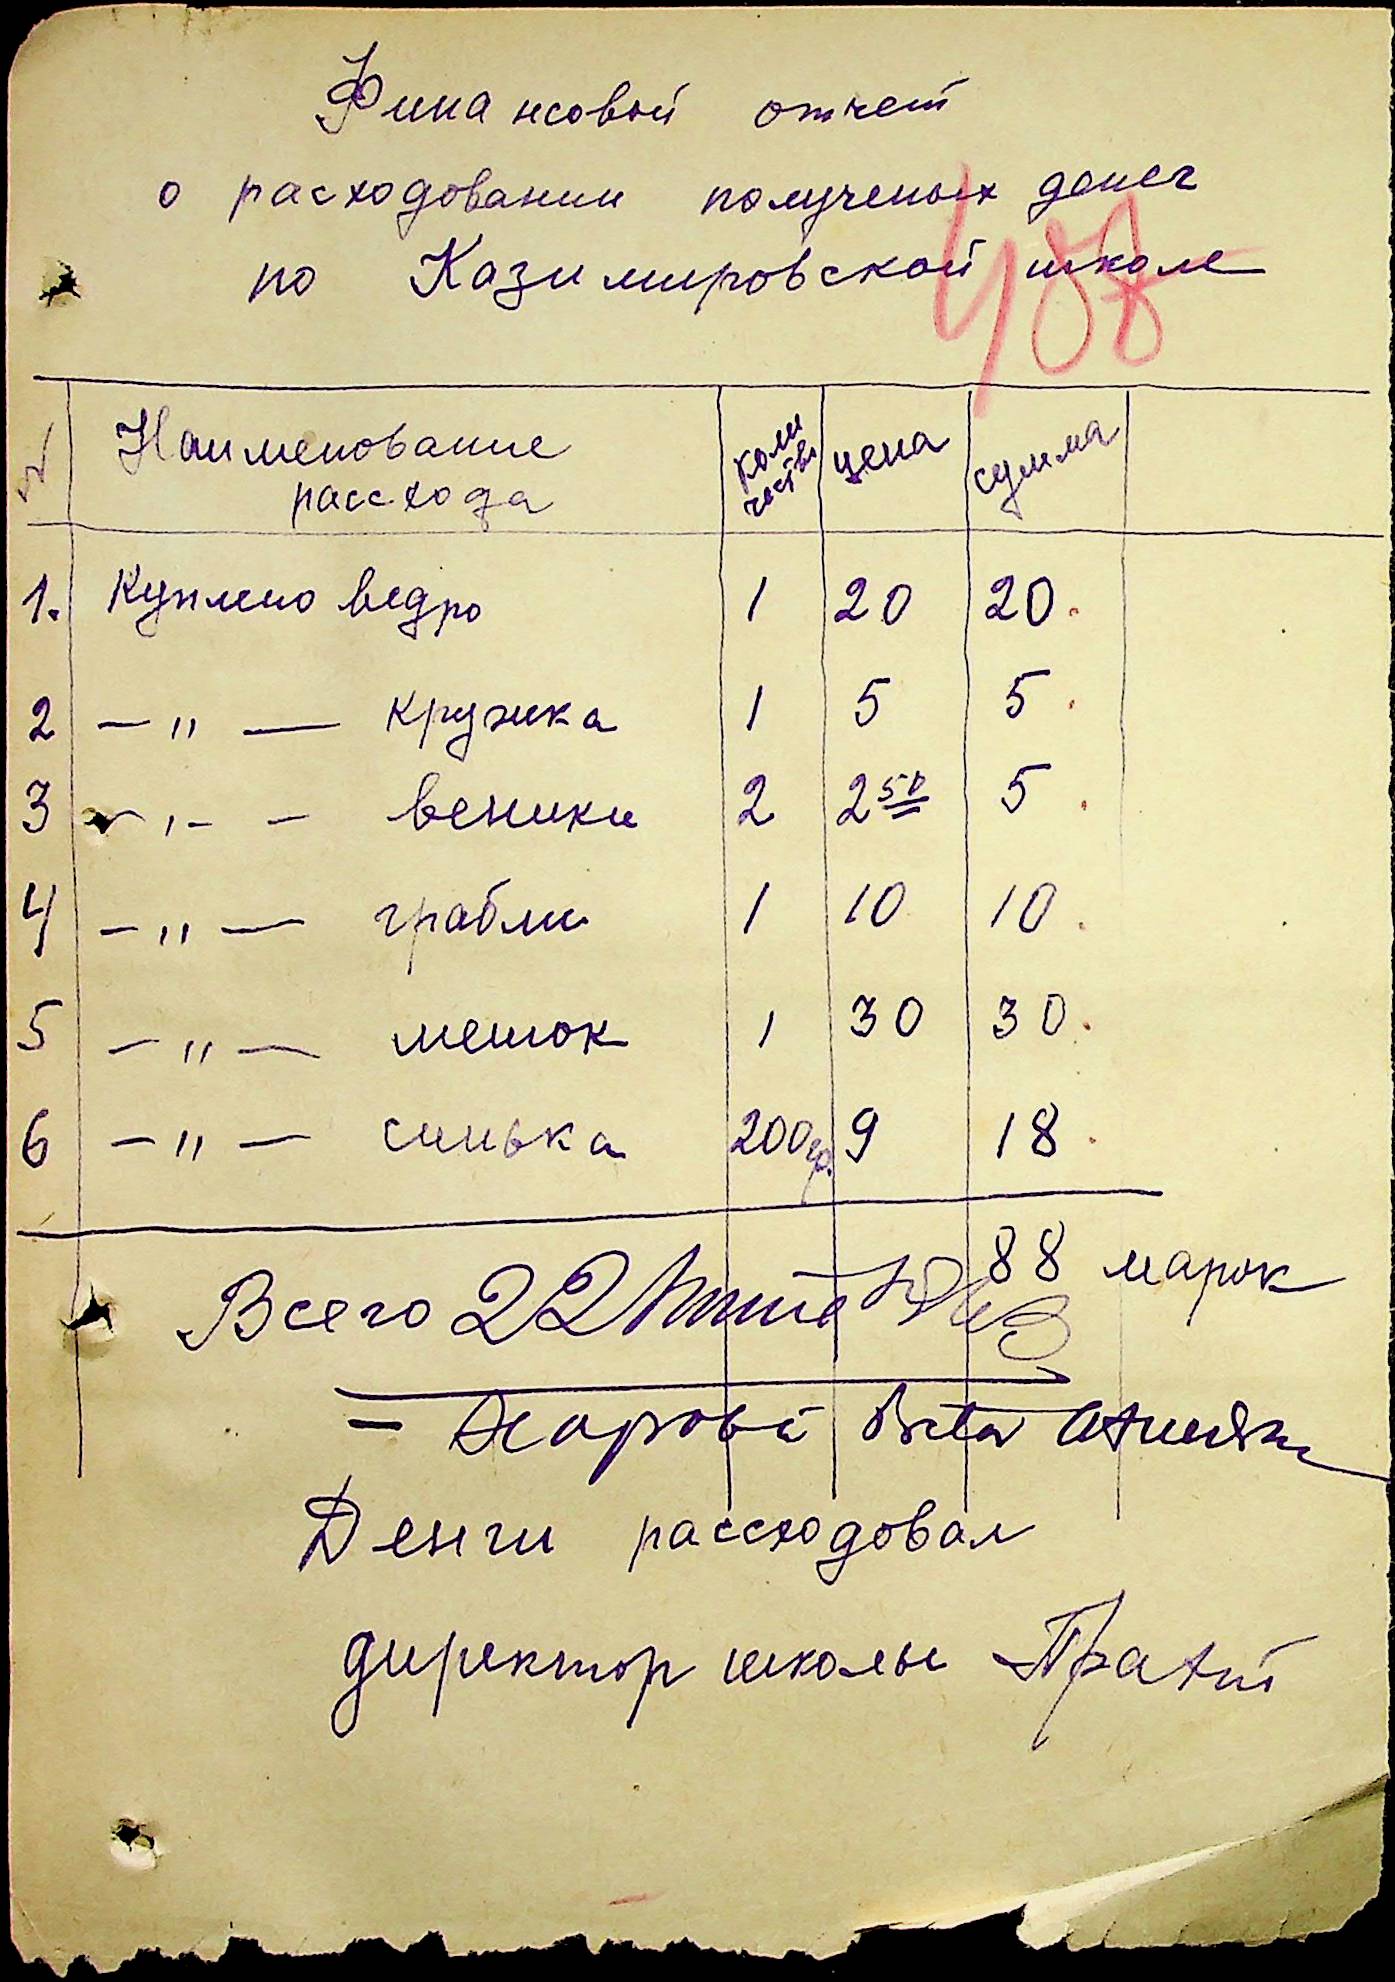 Финансовой отчет
о расходовании полученых денег
по Казимировской школе
408
№ Наименование рассхода количество цена сумма
1. Куплено ведро 1 20 20.
2 — " — кружка 1 5 5.
3 — " — веники 2 2 50 5.
4 — " — грабли 1 10 10.
5 — " — мешок 1 30 30.
6 — " — синька 200гр. 9 18.
88 марок
Всего 22
Денги рассходовал
директор школы